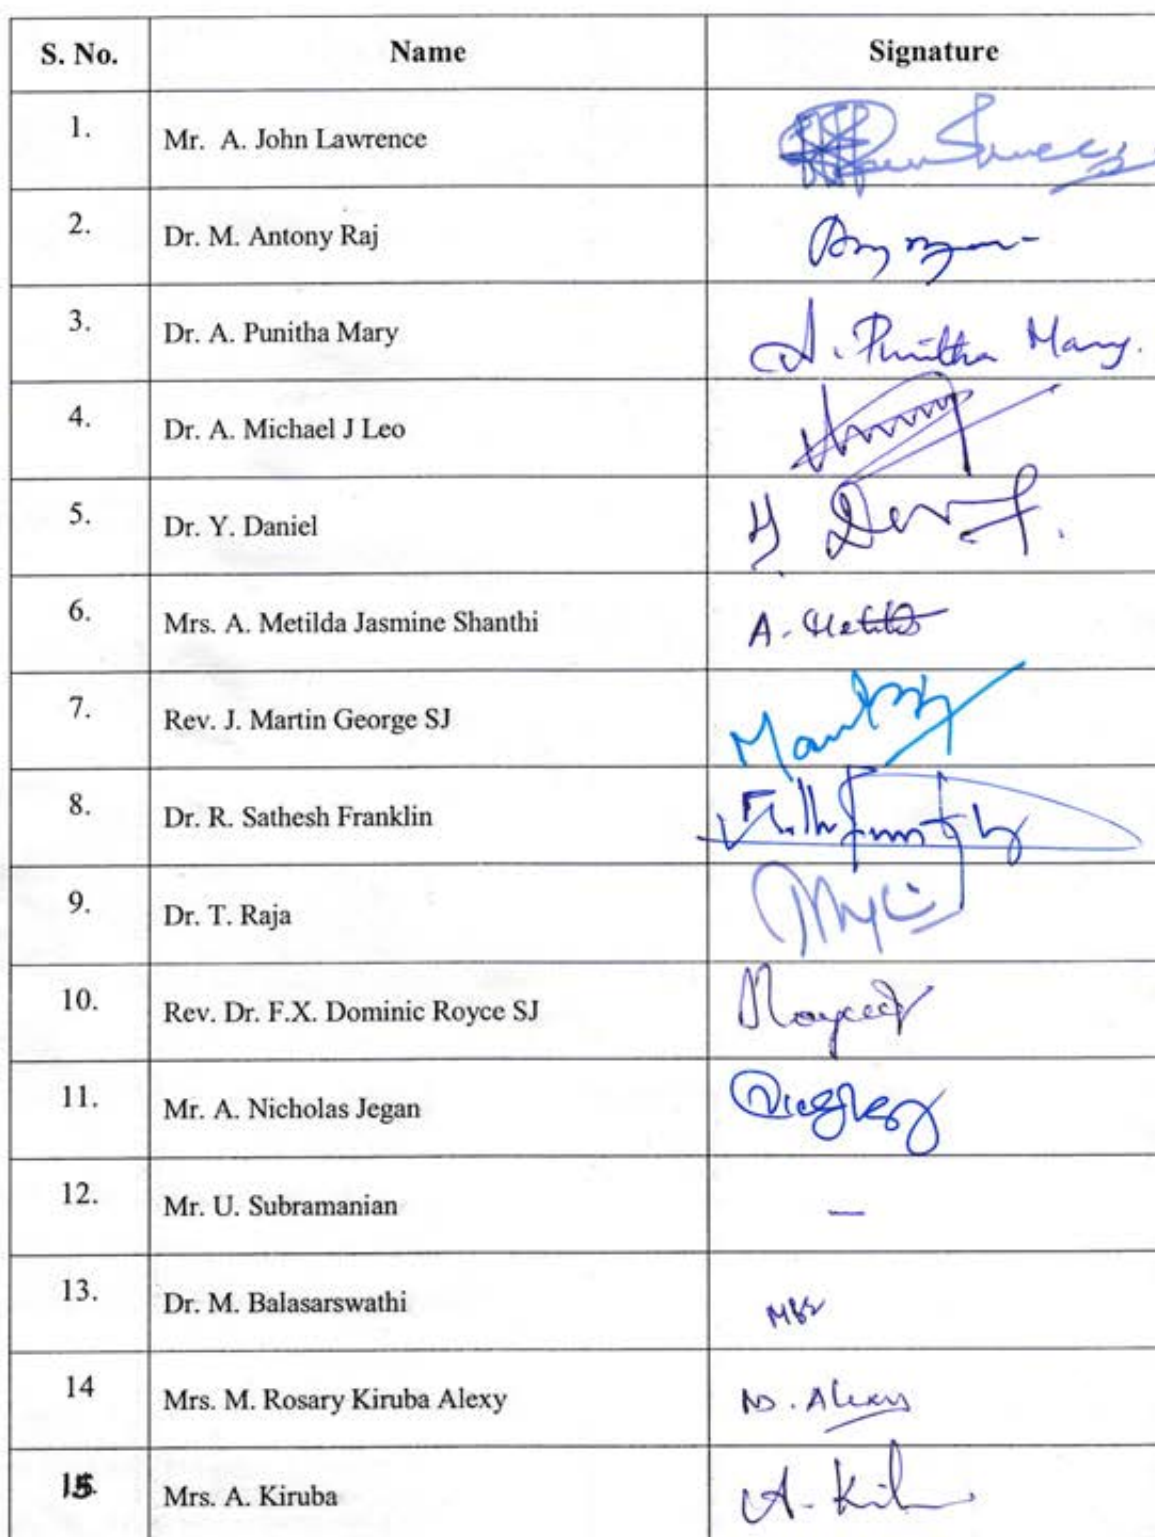 S. No. Name Signature
1. Mr. A. John Lawrence
2. Dr. M. Antony Raj
3. Dr. A. Punitha Mary A. Punitha Mary.
4. Dr. A. Michael J Leo
5. Dr. Y. Daniel Y.
6. Mrs. A. Metilda Jasmine Shanthi A. Metilda
7. Rev. J. Martin George SJ
8. Dr. R. Sathesh Franklin
9. Dr. T. Raja
10. Rev. Dr. F.X. Dominic Royce SJ
11. Mr. A. Nicholas Jegan
12. Mr. U. Subramanian –
13. Dr. M. Balasarswathi MBS
14 Mrs. M. Rosary Kiruba Alexy M. Alexy
15. Mrs. A. Kiruba A.